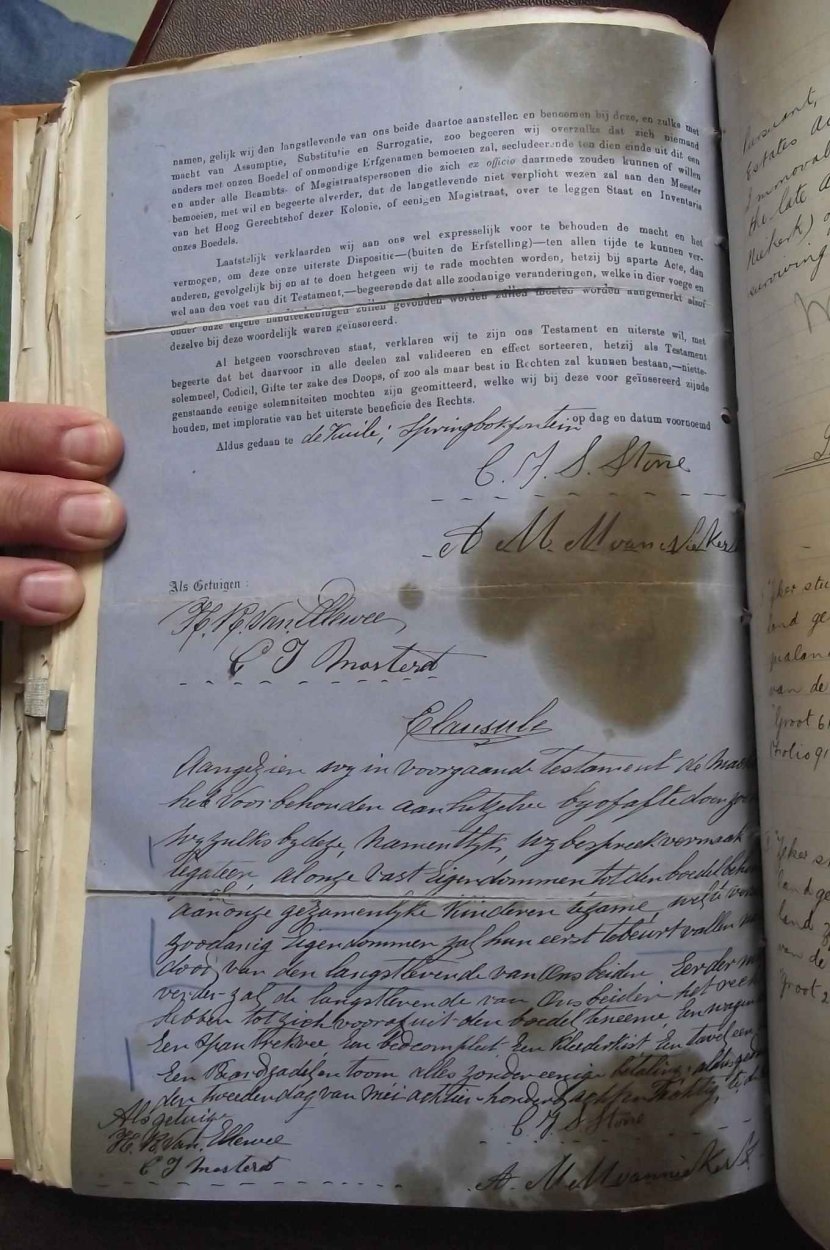 namen, gelijk wij den langstlevende van ons beide daartoe aanstellen en benoemen bij deze, en zulks met
macht van Assumptie, Substitutie en Surrogatie, zoo begeeren wij overzulks dat zich niemand
anders met onzen Boedel of onmondige Erfgenamen bemoeien zal, secludeerende ten dien einde uit dit een
en ander alle Beambts- of Magistraatspersonen die zich ex officio daarmede zouden kunnen of willen
bemoeien, met wil en begeerte alverder, dat de langstlevende niet verplicht wezen zal aan den Meester
van het Hoog Gerechtshof dezer Kolonie, of eenigen Magistraat, over te leggen Staat en Inventaris
onzes Boedels.
Laatstelijk verklaarden wij aan ons wel expresselijk voor te behouden de macht en het
vermogen, om deze onze uiterste Dispositie—(buiten de Erfstelling)—ten allen tijde te kunnen ver-
anderen, gevolgelijk bij en af te doen hetgeen wij te rade mochten worden, hetzij bij aparte Acte, dan
wel aan den voet van dit Testament,—begeerende dat alle zoodanige veranderingen, welke in dier voege en
onder onze eigene handteekeningen zullen gevonden worden zullen moeten worden aangemerkt alsof
dezelve bij deze woordelijk waren geïnsereerd.
Al hetgeen voorschreven staat, verklaren wij te zijn ons Testament en uiterste wil, met
begeerte dat het daarvoor in alle deelen zal valideeren en effect sorteeren, hetzij als Testament
solemneel, Codicil, Gifte ter zake des Doops, of zoo als maar best in Rechten zal kunnen bestaan,—niette-
genstaande eenige solemniteiten mochten zijn geomitteerd, welke wij bij deze voor geïnsereerd zijnde
houden, met imploratie van het uiterste beneficie des Rechts.
Aldus gedaan te de Kuile, Springbokfontein op dag en datum voornoemd
C. J. S. Stone
A M M van Niekerk
Als Getuigen :
H. R. Van Ellewee
C J Mostert
Clausule
Aangezien wy in voorgaande Testament de
het voorbehouden aan hetzelve by of af te doen
wy zulks by deze, namentlyk, wy bespreek vermaak
ligateer, al onze vast Eigendommen tot den boedel
aan onze gezamenlyke Kinderen
zoodanig Eigendommen zal hun eerst te beurt vallen
dood van den langstlevende van Ons beiden. Eerder
verder zal de langstlevende van Ons beiden het
hebben tot zich vooraf uit den boedel te neeme, Een wagen
Een Span trekvee, Een bed compleet Een Kleederkist En tavel een
Een Paardzadel en toom alles zonder eenige betaling, aldus
den tweeden dag van Mei achtien honderd acht en Tachtig,
Als getuige
C J S Stone
H. R. Van Ellewee
C J Mostert
A. M M van Niekerk
Estates
Immovable
the late
surviving